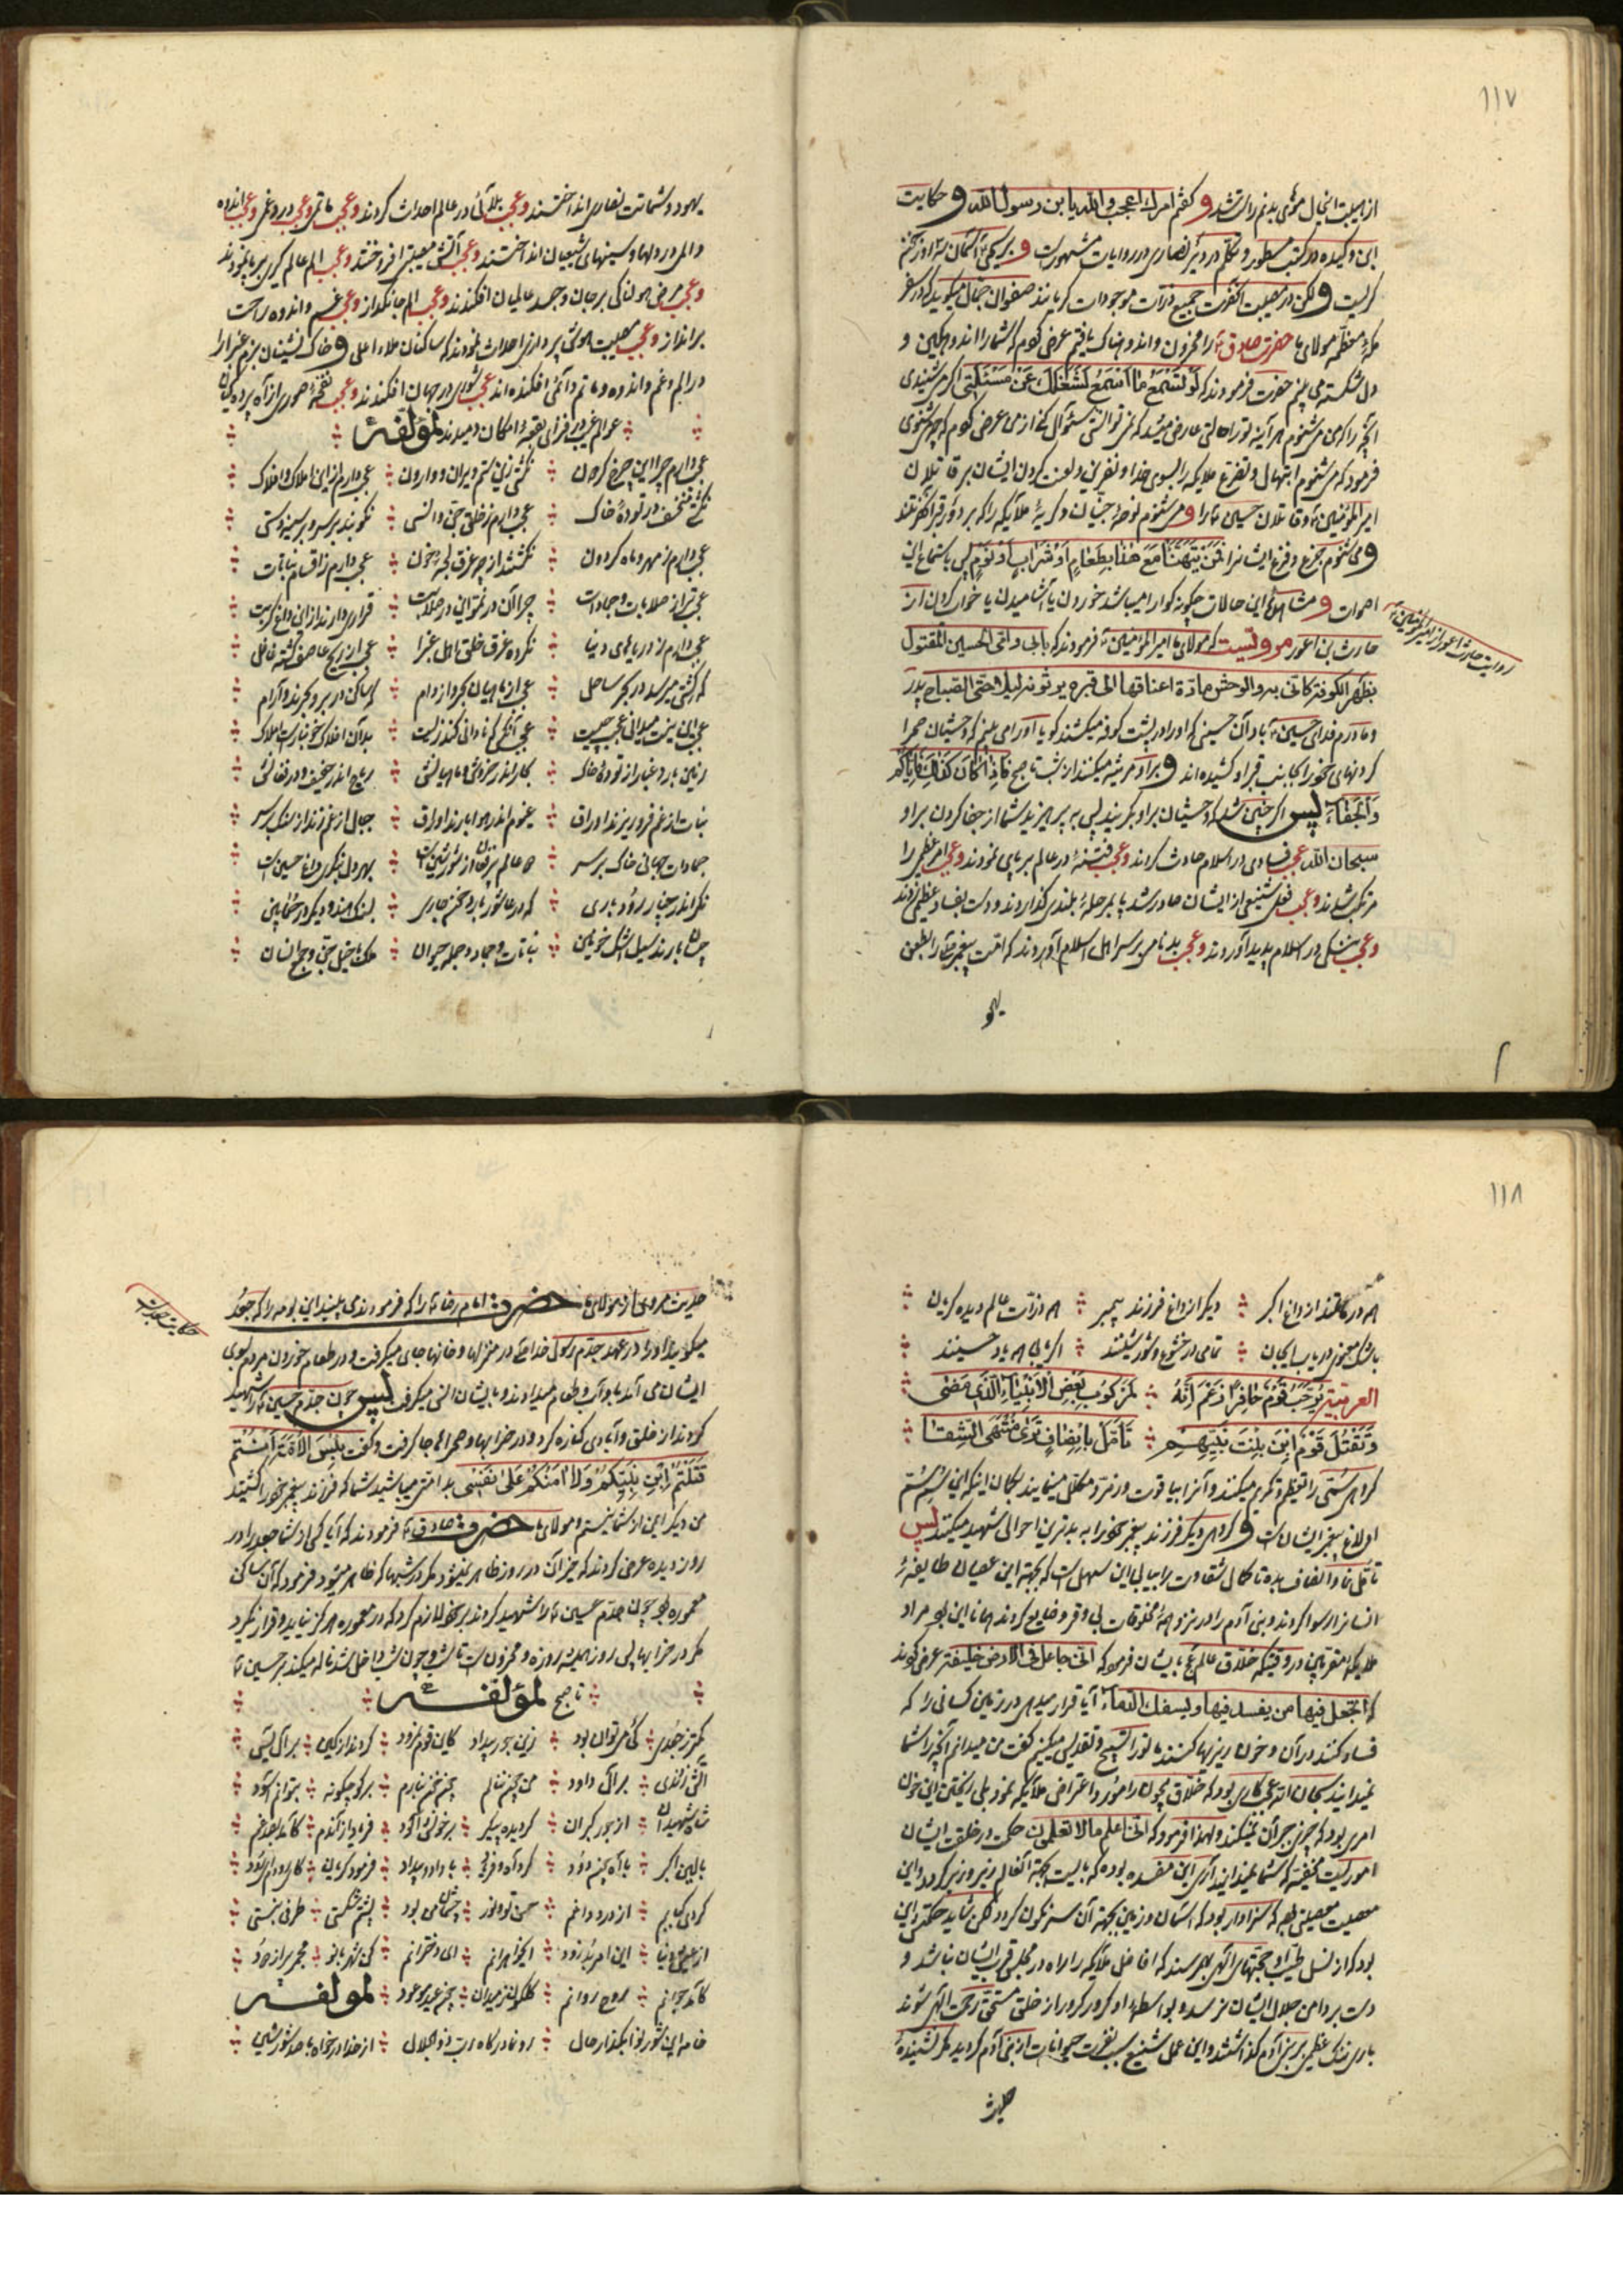 ۱۱۷
از اهلبیت اینحال موئی بدنم راست شد و گفتم امرك اعجب والله یابن رسول الله و حکایت
ابن وکیده در کتب مسطور و تکلم در دیر نصاری در روایات مشهور است و بریحیی آسمان
گریست ولکن در مصیبت آنحضرت جمیع ذرات موجودات گریانند صفوان جمال میگوید که در سفر
مکه معظمه مولای ما حضرت صادق ع را محزون و اندوهناک یافتم عرض کردم که شما را اندوهگین و
دل شکسته می بینم حضرت فرمودند که لَو تَسْمَعُ ما اَسْمَعُ لَشَغَلَكَ عَنْ مَسْئَلَتی اگر می شنیدی
آنچه را که من میشنوم هر آینه تو را حالتی عارض میشد که نمی توانستی سئوال کنی از من عرض کردم که چه میشنوی
فرمود که میشنوم ابتهال و تضرع ملایکه را بسوی خدا و نفرین و لعنت کردن ایشان بر قاتلان
امیر المؤمنین ع و قاتلان حسین ع را و میشنوم نوحۀ جنیان و گریۀ ملائکه را که بر دور قبر آنحضرتند
و می شنوم جزع و فزع ایشانرا فَمَنْ یَتَهَنَّأُ مَعَ هٰذا بِطَعامٍ اَوْ شَرابٍ اَوْ نَوْمٍ پس با استماع این
اصوات و مشاهدۀ این حالات چگونه گوارا میباشد خوردن یا آشامیدن یا خواب کردن از
روایت حارث اعور از امیرالمؤمنین ع
حارث بن اعور مرویست که مولای ما امیر المؤمنین ع فرمودند که بابی و امی الحسین المقتول
بظهر الکوفه کانی به والوحش مادّة اعناقها الی قبره یرثونه لیلاً حتی الصباح پدر
و مادرم فدای حسین ع باد آن حسینی که او را در پشت کوفه میکشند گویا او را می بینم که وحشیان صحرا
گردنهای خود را بجانب قبر او کشیده اند و بر او مرثیه میکنند از شب تا صبح فَاِذا کانَ کَذٰلِكَ فَاِیّاکُمْ
وَالْجَفاءَ پس اگر چنین شد که وحشیان بر او بگریند پس به پرهیزید شما از جفا کردن بر او
سبحان الله عجب فسادی در اسلام حادث کردند و عجب فتنۀ در عالم برپای نمودند و عجب امر عظیمی را
مرتکب شدند و عجب فعل شنیعی از ایشان صادر شد پا بمرحلۀ بلندی گذاردند و دست بفساد عظیمی زدند
و عجب ننگی در اسلام پدید آوردند و عجب بدنامی بر سر اهل اسلام آوردند که امت پیغمبر ما را بطعن
یهو
یهود و شماتت نصاری انداختند و عجب بلائی در عالم احداث کردند و عجب ماتمی و عجب درد و غمی و عجب اندوه
و المی در دلها و سینهای شیعیان انداختند و عجب آتش مصیبتی افروختند و عجب الم عالم گیری برپا نمودند
و عجب مرض هولناکی بر جان و جسد عالمیان افکندند و عجب الم جانگداز و عجب غم و اندوه راحت
برانداز و عجب مصیبت هوش پردازی احداث نمودند که ساکنان ملاء اعلی و خاک نشینان بزم غبرا را
در الم و غم و اندوه و ماتم دائمی افکنده اند عجب شوری در جهان افکندند و عجب نفخۀ صوری از آه پرده گیان
عوالم غیب در فزای بقعۀ امکان دمیدند لمؤلفه
عجب دارم چرا این چرخ گردون ⁘ نگشتی زین ستم ویران و وارون ⁘ عجب دارم از این املاک و افلاک
نگشته منخسف در تودۀ خاک ⁘ عجب دارم ز خلق جن و انسی ⁘ نکوبند بر سر و بر سینه دستی
عجب دارم ز مهر و ماه گردون ⁘ نگشتند از چه غرق لجۀ خون ⁘ عجب دارم ز اقسام نباتات
عجب تر از صلابات و جمادات ⁘ چرا آن در نمو این در صلابت ⁘ قراری دارند از این داغ کربت
عجب دارم ز دریاهای دنیا ⁘ نکرده غرق خلق اهل غبرا ⁘ عجب از ریح عاصف گشته غافل
که کشتی میرسد در بحر ساحل ⁘ عجب از ماهیان بحر و از دام ⁘ که ساکن در بر و بحرند و آرام
عجب این نیست میدانی عجب چیست ⁘ عجب آنکس که نادانی کند زیست ⁘ بدان افلاک خونبارست املاک
زمین بارد غبار از تودۀ خاک ⁘ بحار اندر خروش و ماهیانش ⁘ ریاح اندر خفیف و در فغانش
نبات از غم فرو ریزند اوراق ⁘ غیوم اندر هوا بارند اوراق ⁘ جبال از غم زنند از سنگ بر سر
جمادات جهانی خاک بر سر ⁘ همه عالم پر فغان از شورشین است ⁘ بهر دل بنگری داغ حسین است
نگر اندر چنار رود باری ⁘ که در عاشور بارد خون جاری ⁘ بسنگ هند و دیگر در ختا بین
چسان بارند سیل اشک خونین ⁘ نباتات و جماد و جمله حیوان ⁘ ملک با خیل جن و جمع انسان
۱۱۸
همه در ماتمند از داغ اکبر ⁘ دیگر از داغ فرزند پیمبر ⁘ همه ذرات عالم دیده گریان
تمامی در خشوع و شور شینند ⁘ اگر یابی همه یاد حسینند
العربیة یُوَجِّبُ قَوْمٌ حافِرًا زَعْمَ اَنَّهُ ⁘ لَمَرْکُوبُ بَعْضِ الْاَنْبِیاءِ الَّذی مَضی
وَتَقْتُلُ قَوْمٌ اِبْنَ بِنْتِ نَبِیِّهِمْ ⁘ تَاَمَّلْ بِاِنْصافٍ تَری مُنْتَهَی الشِّقا
گروهی سُمّی را تعظیم و تکریم میکنند و آنرا بیاقوت و زمرّد مکلل مینمایند بگمان اینکه این سُم سُم
اولاغ پیغمبر ایشان است و گروهی دیگر فرزند پیغمبر خود را به بدترین احوالی شهید میکنند پس
تأمل نما و انصاف بده تا کمال شقاوت را بیابی این سهل است که بجهة این عصیان طایفۀ
انسانرا رسوا کردند و بنی آدم را در نزد همۀ مخلوقات بی وقر و ضایع کردند همانا این بود مراد
ملایکه مقربین در وقتیکه خلاق عالم ع با ایشان فرمود که انی جاعل فی الارض خلیفة عرض کردند
که اتجعل فیها من یفسد فیها ویسفك الدماء آیا قرار میدهی در زمین کسانی را که
فساد کنند در آن و خون ریزیها کنند ما تو را تسبیح و تقدیس میکنیم گفت من میدانم آنچه را شما
نمیدانید سبحان الله عجب کاری بود که خلاق بیچون را مورد اعتراض ملائکه نمود بلی ریختن این خون
امری بود که چیزی جبر آن نمیکند ولهذا فرمود که انی اعلم ما لا تعلمون حکمت در خلقت ایشان
اموریست خفیّه که شما نمیدانید آری این مفسده بوده که بایست بجهة آن عالم زیر و زبر گردد و این
مصیبت مصیبتی بود که سزاوار بود که آسمان و زمین بجهة آن سرنگون گردد لکن شاید حکمتش این
بود که از نسل طیب او حجتهای الهی بهم رسند که افاضل ملائکه را راه در مجلس قرب ایشان نباشد و
دست بر دامن جلال ایشان نرسد و بواسطه او کرور کرور از خلق مستحق رحمت الهی شوند
باری ننگ عظیمی بر بنی آدم گذاشتند و این عمل شنیع سبب نفرت حیوانات از بنی آدم گردید مگر نشنیدۀ
حدیث
حکایت جغد است
حدیث مروی از مولای ما حضرت امام رضا ع را که فرمودند می بینید این بومه را که جغد
میگویند او را در عهد جدّم رسول خدا ص در منزلها و خانها جای میگرفت و در طعام خوردن مردم بسوی
ایشان می آمد باو آب و طعام میدادند و با ایشان انس میگرفت پس چون جدّم حسین ع را شهید
کردند از خلق و آبادی کناره کرد و در خرابها و صحراها جا گرفت و گفت بِئْسَ الْاُمَّةُ اَنْتُمْ
قَتَلْتُمُ ابْنَ بِنْتِ نَبِیِّکُمْ وَلا اٰمَنُکُمْ عَلی نَفْسی بد امتی میباشید شما که فرزند پیغمبر خود را کشتید
من دیگر ایمن از شما نیستم و مولای ما حضرت صادق ع فرمودند که آیا کسی از شما جغد را در
روز دیده عرض کردند که خیر آن در روز ظاهر نمیشود مگر در شبها که ظاهر میشود فرمود که آن ساکن
معموره بود چون جدّم حسین ع را شهید کردند بر خود لازم کرد که در معموره هرگز نیاید و قرار نگیرد
مگر در خرابها پس روز همیشه روزه و محزون است تا شب و چون شب داخل شد ناله میکند بر حسین ع
تا صبح لمؤلفه
کمتر ز جغدی ⁘ کی میتوان بود ⁘ زین جور بیداد ⁘ کاین قوم نمرود ⁘ کردند از کین ⁘ بر آل یس
آتش زدندی ⁘ بر آل داود ⁘ من چون ننالم ⁘ چون خون نبارم ⁘ برگو چگونه ⁘ بتوانم آسود
شاه شهیدان ⁘ از جور گبران ⁘ گردیده پیکر ⁘ بر خون آلود ⁘ فریاد از آندم ⁘ کآمد بصد غم
بالین اکبر ⁘ با آه چون دود ⁘ کرد آه و فریاد ⁘ با داد و بیداد ⁘ فرمود گریان ⁘ کای رود رود
کردی کبابم ⁘ از درد و داغم ⁘ حسن تو انور ⁘ چشمان من بود ⁘ پشتم شکستی ⁘ طرفی نبستی
از عیش دنیا ⁘ این امر بُد زود ⁘ ای خواهرانم ⁘ ای دخترانم ⁘ کی شهربانو ⁘ مجمر پر از عود
کآمد جوانم ⁘ روح روانم ⁘ گلگون ز میدان ⁘ چون عید موعود ⁘ لمولفه
خامه این شور نوا بگذار حال ⁘ رو نما در گاه رب ذو الجلال ⁘ از خدا درخواه با صد شور شین